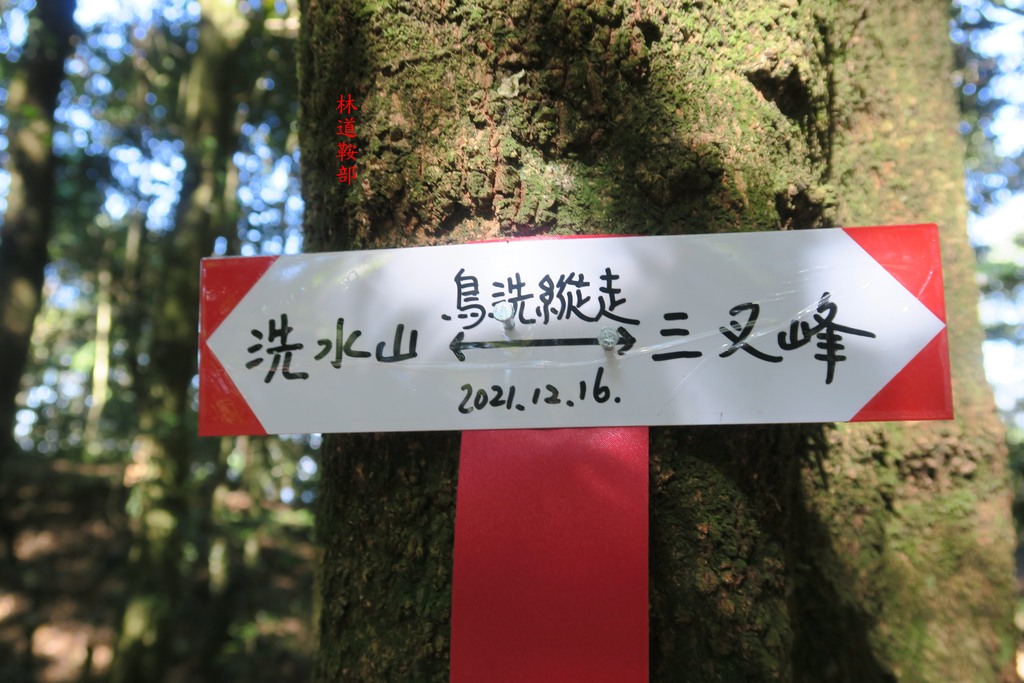 林道鞍部
鳥洗縱走
洗水山 ←→ 三叉峰
2021.12.16.